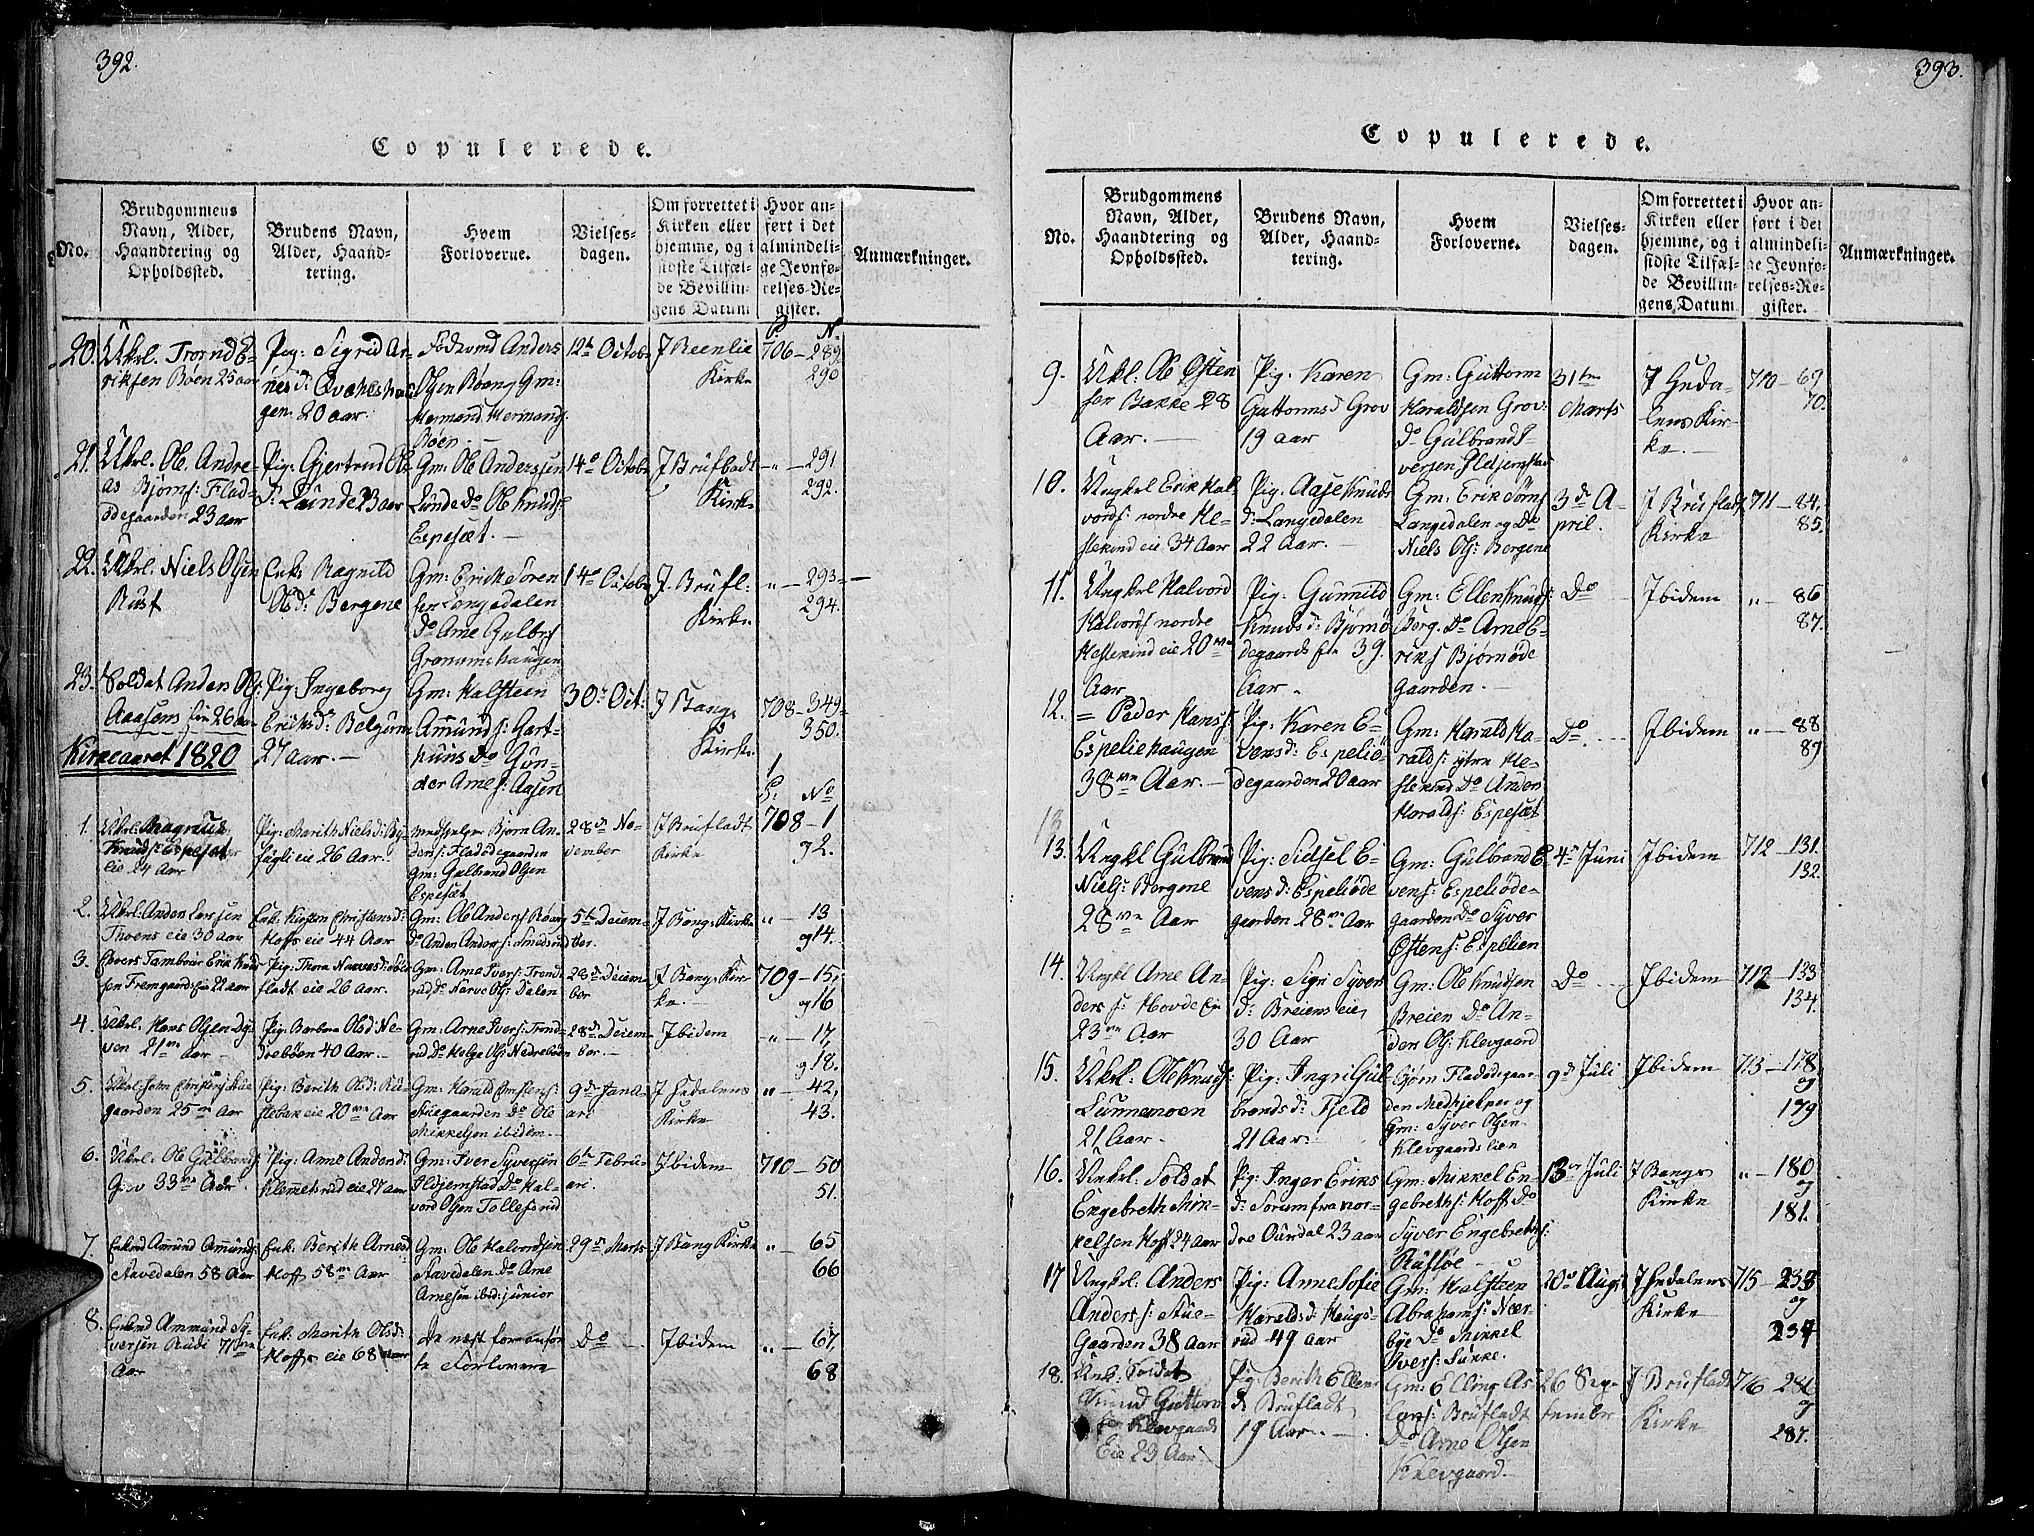 392.
Copulerede.
No.
Brudgommens
Navn, Alder,
Haandtering og
Opholdssted.
Brudens Navn,
Alder, Haand-
tering.
Hvem
Forloverne.
Vielses-
dagen.
Om forrettet i
Kirken eller
hjemme, og i
sidste Tilfæl-
de Bevillin-
gens Datum
Hvor an-
ført i det
almindeli-
ge Jevnfø-
relses-Re-
gister.
Anmærkninger.
P. No
20. Ukrl. Trond E-
riksen Böen 25 aar
Pig: Sigrid Ar-
nesd: Qvahlshau
gen. 20 aar.
Anders
Olsen Röang Gm:
Hermand Hermands:
Böen.
12te Octobr
J Reenlie
Kirke
706 - 289
290
21. Ukrl. Ole Andre-
as Bjørns: Flad-
ødegaarden 23 aar
Pig: Gjertrud Ols
d: Lunde 23 aar
Gm: Ole Anderssen
Lunde Do Ole Knuds:
Espesæt.
14de Octobr
J Brufladt
Kirke
„ - 291
292.
22. Ukrl. Niels Olsen
Rust
Enke Ragnild
Olsd: Bergene
Gm: Erick Sören
sen Langedalen
Do Arne Gulbrs
Granumshaugen
14de Octobr
J Brufl:
Kirke
„ - 293-
294.
23. Soldat Anders Ols:
Aasens Eie 26 aar
Pig: Ingeborg
Eriksd: Belgum
27 aar.
Gm: Halsteen
Amunds: Gart-
huus Do Gun-
der Arnes: Aasen
30te Oct:
J Bangs
Kirke
708 - 349-
350.
Kirkeaaret 1820
P: No
1. Ukrl: Magnus
Knuds: Espesæt
eie 24 aar
Pig: Marith Nielsd: By
fugli eie 26 Aar.
Medhjelper Bjørn An-
ders: Fladødegaarden
Gm: Gulbrand Olsen
Espesæt
28de No-
vember
J Brufladt
Kirke
708 - 1
og 2.
2. Ukrl: Anders Larsen
Thoens eie 30 aar
Enk: Kirsten Christensd:
Hoffs eie 44 Aar
Gm: Ole Anders: Röang
Do Anders Anders: Smedsrud
5te Decem-
ber.
J Bangs Kirke
„ - 13
og 14.
3. Tambour Erik Knud
sen Fremgaards Eie 22 aar
Pig: Thora Narvesd:
fladt eie 26 aar.
Gm: Arne Ivers: Trond-
rud Do Narve Ols: Dalen
28de Decem-
ber
J Bangs Kir-
ke.
709 - 15,
og 16
4. Ukrl. Hans Olsen Dys
ven 21 aar
Pig: Barbra Olsd: Ne-
dreböen 40 Aar.
Gm: Arne Ivers: Trond-
rud Do Helge Ols: Nedreböen
28de Decem-
ber.
Jbidem
„ - 17,
og 18.
5. Ukrl: John Christens: Stue
gaarden 25 Aar
Pig: Berith Olsd:
slebak eie 20 Aar
Gm: Harald Christens:
Stuegaarden Do Ole
Mikkelsen ibidem.
9de Janu-
ari:
J Hedalens
Kirke
„ - 42,
43.
6. Ukrl. Ole Gulbrands:
Grov 33 Aar
Pig: Anne Andersd:
Klemetsrud eie 27 aar
Gm: Iver Syversen
Ildjernstad Do Hal-
vord Olsen Tollefsrud
6te Febru-
ari.
Jbidem
710 - 50
51.
7. Enkmd Amund Amunds:
Stavedalen 58 Aar
Enk: Berith Arnesd:
Hoff 58 Aar
Gm: Ole Halvordsen
Stavedalen Do Arne
Arnesen ibid: junior
29de Marts
J Bang Kirke
„ - 65
66
8. Enkmd Ammund Sy-
versen Rudi 71
Aar
Enk: Marith Olsd:
Hoffs eie 68 Aar
De næst foranför-
te Forlovere
Do
Jbidem
„ - 67,
68
393.
Copulerede.
No.
Brudgommens
Navn, Alder,
Haandtering og
Opholdssted.
Brudens Navn,
Alder, Haand-
tering.
Hvem
Forloverne.
Vielses-
dagen.
Om forrettet i
Kirken eller
hjemme, og i
sidste Tilfæl-
de Bevillin-
gens Datum
Hvor an-
ført i det
almindeli-
ge Jevnfø-
relses-Re-
gister.
Anmærkninger.
9. Ukl: Ole Østen
sen Bakke 28
Aar.
Pig: Karen
Guttormsd Grov
19 aar
Gm: Guttorm
Haraldsen Grov:
Do Gulbrand I-
versen Ildjernstad
31te
Marts
J Heda-
lens Kir-
ke.
710 - 69
70.
10. Ungkl Erik Hal
vords: nordre He-
stekind eie 34 Aar
Pig: Aase Knuds
d: Langedalen
22 Aar.
Gm: Erik Sörns
Langedalen og Do
Niels Ols: Bergene
3de A-
pril.
J Brufladt
Kirke
711 - 84,
85.
11. Ungkl Halvord
Halvords nordre
Hestekind eie 20
Aar
Pig: Gunnild
Knudsd: Bjørnø
degaards eie 39.
Aar.
Gm: Ellen Knuds:
Berg. Do Arne E-
riks Bjørnøde
gaarden.
Do
Jbidem
„ - 86
87.
12. = Peder Hans:
Espeliehaugen
38 Aar.
Pig: Karen E-
vensd: Espeliö-
degaarden 20 aar
Gm: Harald Ha-
ralds: ytre He-
stekind Do Anders
Haralds: Espesæt
Do.
Jbidem
„ - 88
89
13
13. Ungkl Gulbrand
Niels: Bergene
28 Aar
Pig: Sidsel E-
vensd: Espeliøde
gaarden 28 Aar
Gm: Gulbrand E
vens: Espeliøde-
gaarden Do Syver
Østens: Espelien
4de Juni
Jbidem
712 - 131.
132.
14. Ungkl Arne An-
ders s: Hovde Eie
23 Aar
Pig: Sigri Syver
d: Breiens eie,
30 Aar
Gm: Ole Knudsen
Breien Do An-
ders Ols: Klevgaard
Do
Jbidem
712 - 133
134.
15. Ukrl: Ole Knuds:
Lunnemoen
21 Aar.
Pig: Ingri Gul
brandsd: Fjeld
21 Aar.
Bjørn Fladødegaar-
den Medhjelper og
Gm: Syver Olsen
Klevgaardslien
9de Juli
Jbidem
713 - 178
og
179
16. Unkl. Soldat
Engebreth Mik-
kelsen Hoff 24 aar
Pig: Inger Eriks
d: Sorum fra nor-
dre Ourdal 23 aar
Gm: Mikkel En-
gebreths: Hoff Do
Syver Engebreths:
Rustöe
13de Juli
J Bangs
Kirke
„ - 180
og
181.
17 Ungkrl. Anders
Anders: Stue-
Gaarden 38 Aar
Pig: Anne Sofie
Haraldsd: Haugs-
rud 49 aar
Gm: Halsteen
Abrahams: Nær-
bye Do Mikkel
Ivers: Sukke.
20de Augt
J Hedalens
Kirke
715 - 233
og
234
18. Unk: Soldat
Knud Guttorm
sen Klevgaards
Eie 23 Aar.
Pig: Berith Ellens
d: Brufladt
19 Aar.
Gm: Elling As
lans: Brufladt
Do Arne Olsen
Klevgaard.
26 Sep-
tember
J Brufladt
Kirke
716 - 286
og
287.